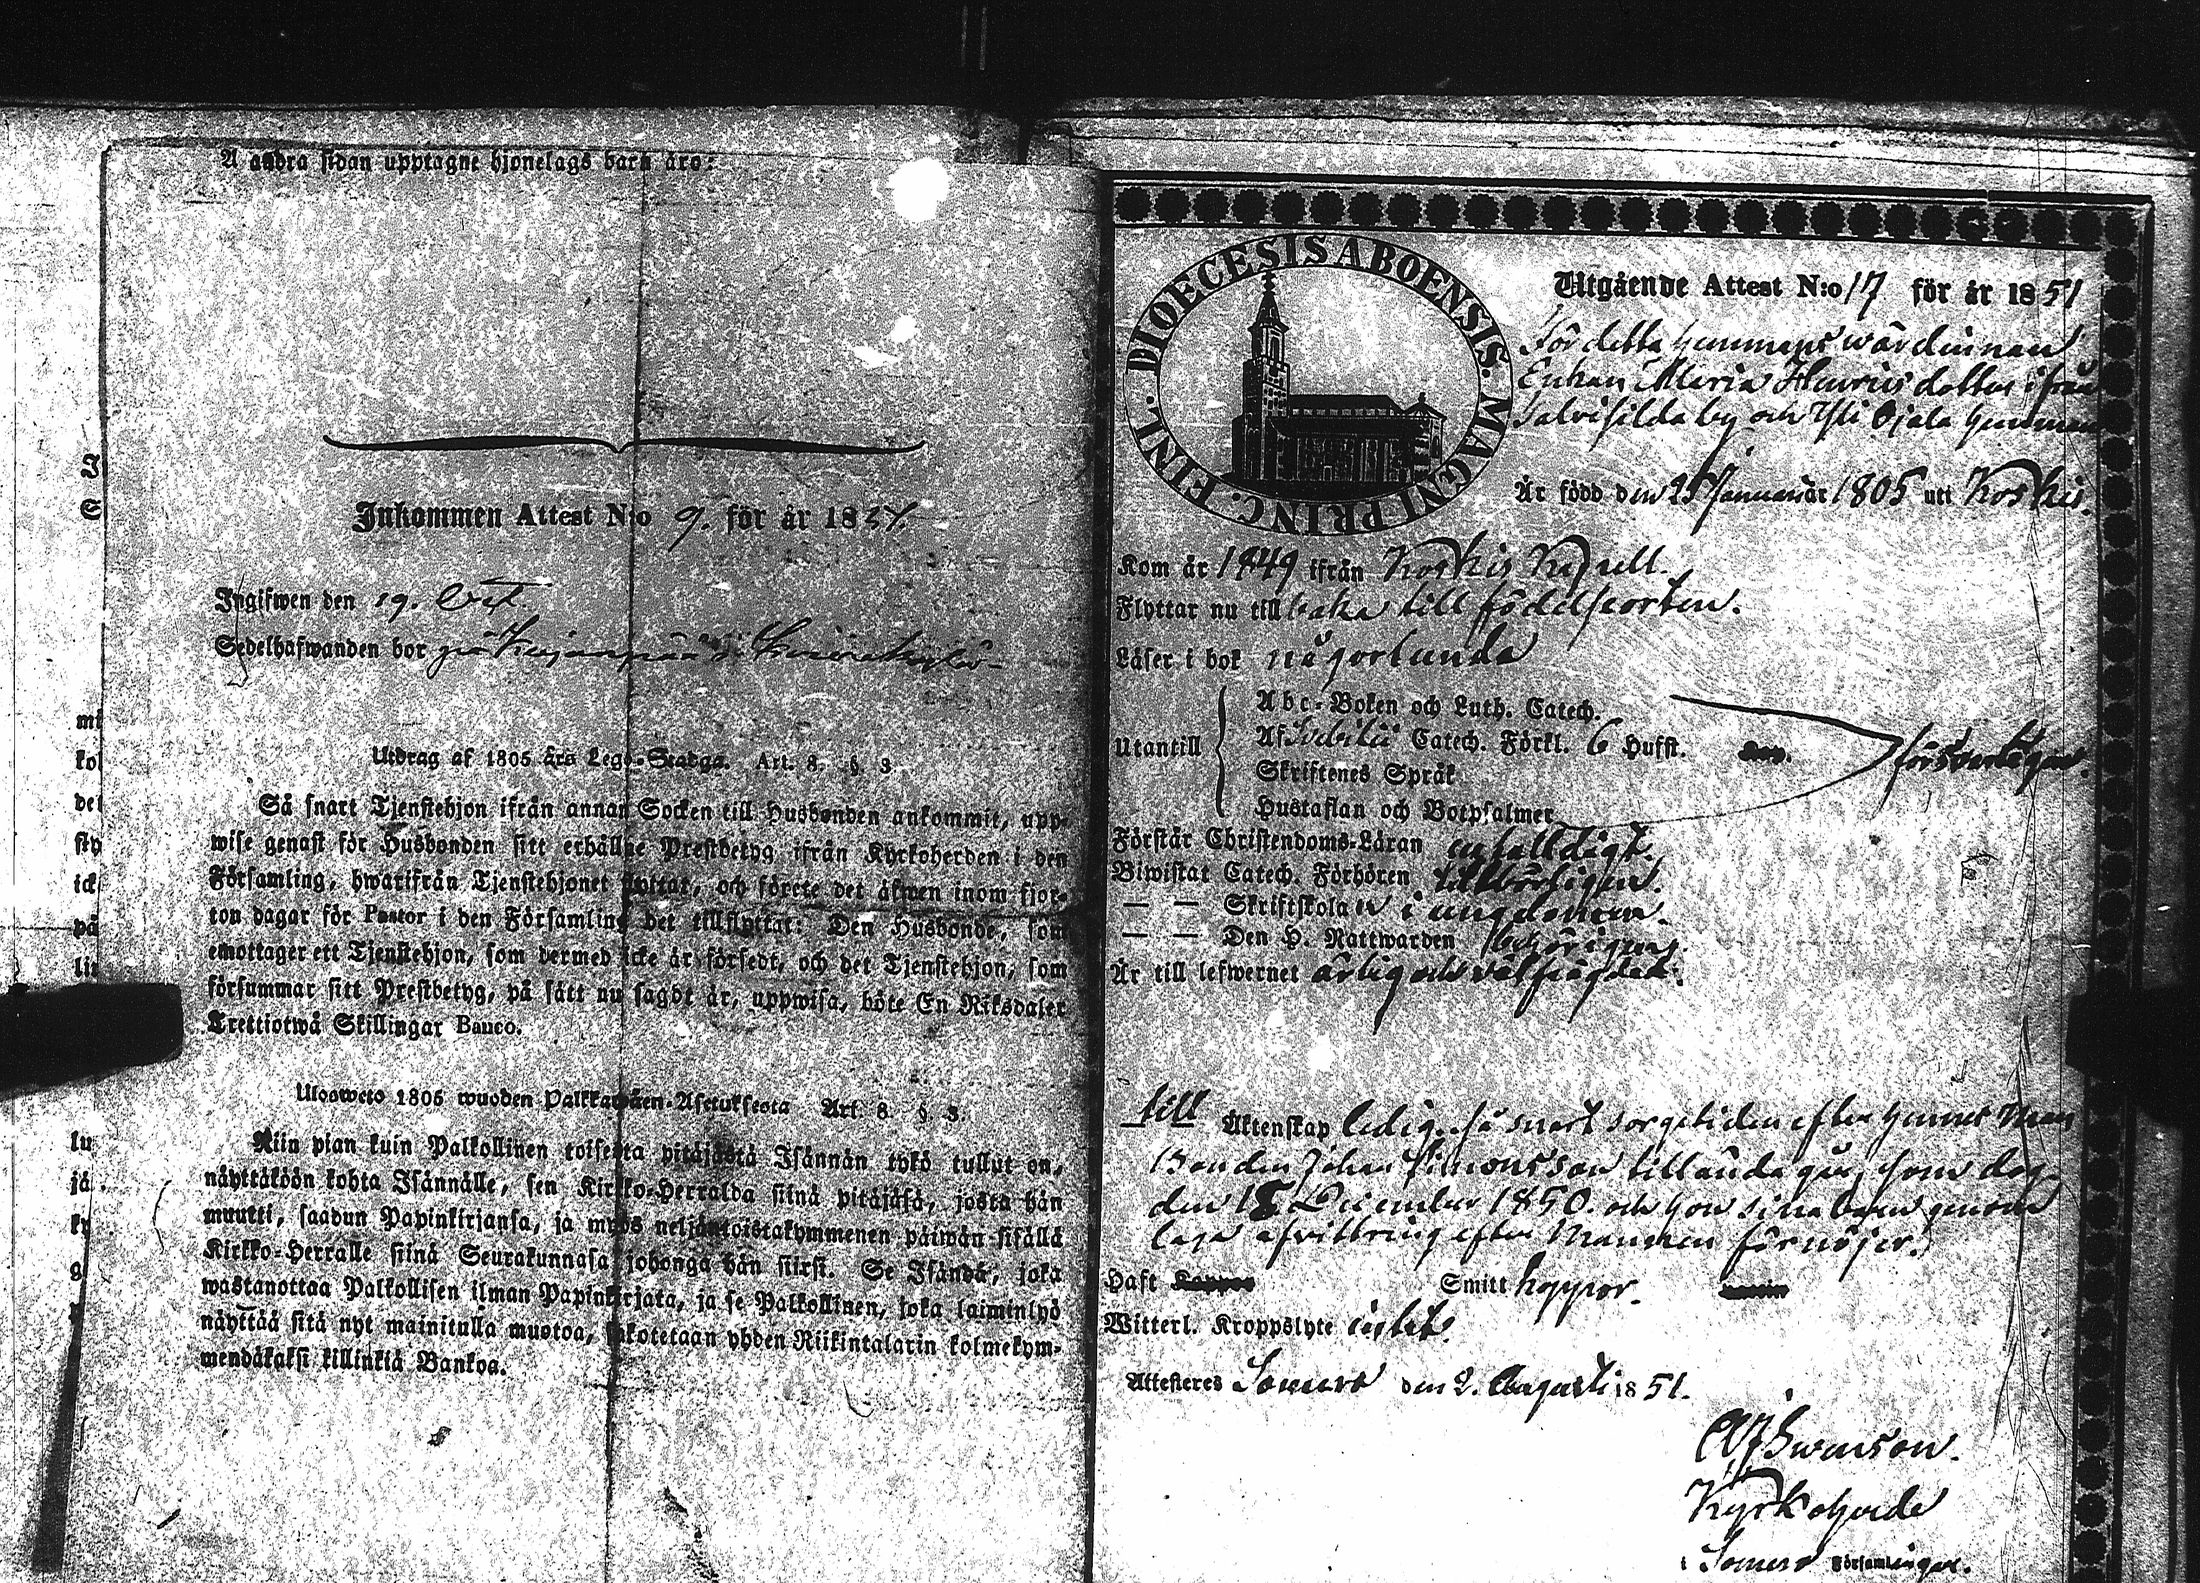 Å andra sidan upptagne hjonelags barn äro:
Inkommen Attest N:o 9. för år 18
Ingifwen den 19. Oct.
Sedelhafwanden bor på
Utdrag af 1805 års Lego-Stadga. Art. 8. §. 3.
Så snart Tjenstehjon ifrån annan Socken till Husbonden ankommit, upp-
wise genast för Husbonden sitt erhållne Prestbetyg ifrån Kyrkoherden i den
Församling, hwarifrån Tjenstehjonet flyttat, och förete det äfwen inom fjor-
ton dagar för Pastor i den Församling det tillflyttat: Den Husbonde, som
emottager ett Tjenstehjon, som dermed icke är försedt, och det Tjenstehjon, som
försummar sitt Prestbetyg, på sätt nu sagdt är, uppwisa, böte En Riksdaler
Trettiotwå Skillingar Banco.
Ulosweto 1805 wuoden Palkkawäen-Asetuksesta Art. 8 §. 3.
Niin pian kuin Palkollinen toisesta pitäjästä Isännän tykö tullut on,
näyttäköön kohta Isännälle, sen Kirkko-Herralda siinä pitäjäsä, josta hän
muutti, saadun Papinkirjansa, ja myös neljäntoistakymmenen päiwän sisällä
Kirkko-Herralle siinä Seurakunnasa johonga hän siirsi. Se Isändä, joka
wastanottaa Palkollisen ilman Papinkirjata, ja se Palkollinen, joka laiminlyö
näyttää sitä nyt mainitulla muotoa, sakotetaan yhden Riikintalarin kolmekym-
mendäkaksi killinkiä Bankoa.
DIOECESIS ABOENSIS. MAGNI PRINC. FINL.
Utgående Attest N:o 17 för år 1851
Förddetta hemmans wärdinnan
Enkan Maria Henrics dotter ifrån
by och Yli Ojala hemman
Är född den 25 Januari år 1805 uti Koskis.
Kom år 1849 ifrån Koskis Kapell.
Flyttar nu tillbaka till födelseorten.
Läser i bok någorlunda
Utantill
Abc-Boken och Luth. Catech.
Af Svebilii Catech. Förkl. 6 Hufst.
Skriftenes Språk
Hustaflan och Botpsalmer
försvarligen.
Förstår Christendoms-Läran enfalldigt.
Biwistat Catech. Förhören tillbörligen.
— — Skriftskolan i ungdomen.
— — Den H. Nattwarden behörigen.
Är till lefwernet ärlig och välfrägdad.
till Äktenskap ledig, så snart sorgetiden efter hennes Man
Bonden Johan Simonsson tilländagår, som dog
den 18 December 1850. och hon sina barn genom
laga afvittring efter Mannen förnöjer.
Haft Smitt koppor.
Witterl. Kroppslyte intet.
Attesteres Somero den 2. Augusti 1851.
Swanson.
Kyrkoherde
i Somero Församlingar.